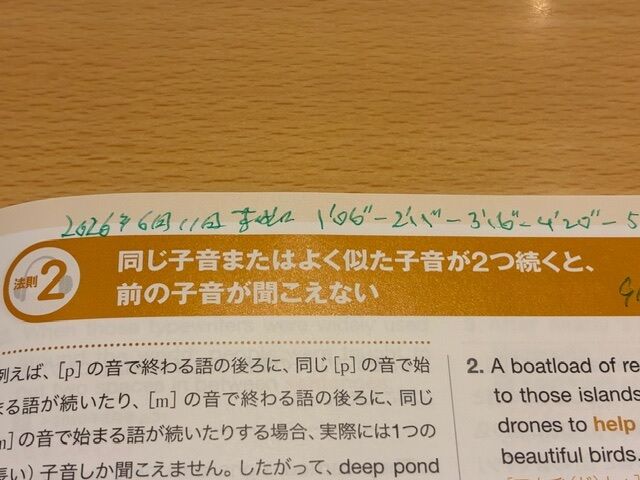 2026年6月11日 1'06"-2'11"-3'16"-4'20"-5
法則2
同じ子音またはよく似た子音が2つ続くと、
前の子音が聞こえない
例えば、[p]の音で終わる語の後ろに、同じ[p]の音で始
まる語が続いたり、[m]の音で終わる語の後ろに、同じ
m]の音で始まる語が続いたりする場合、実際には1つの
長い）子音しか聞こえません。したがって、deep pond
2. A boatload of re
to those islands
drones to help
beautiful birds.